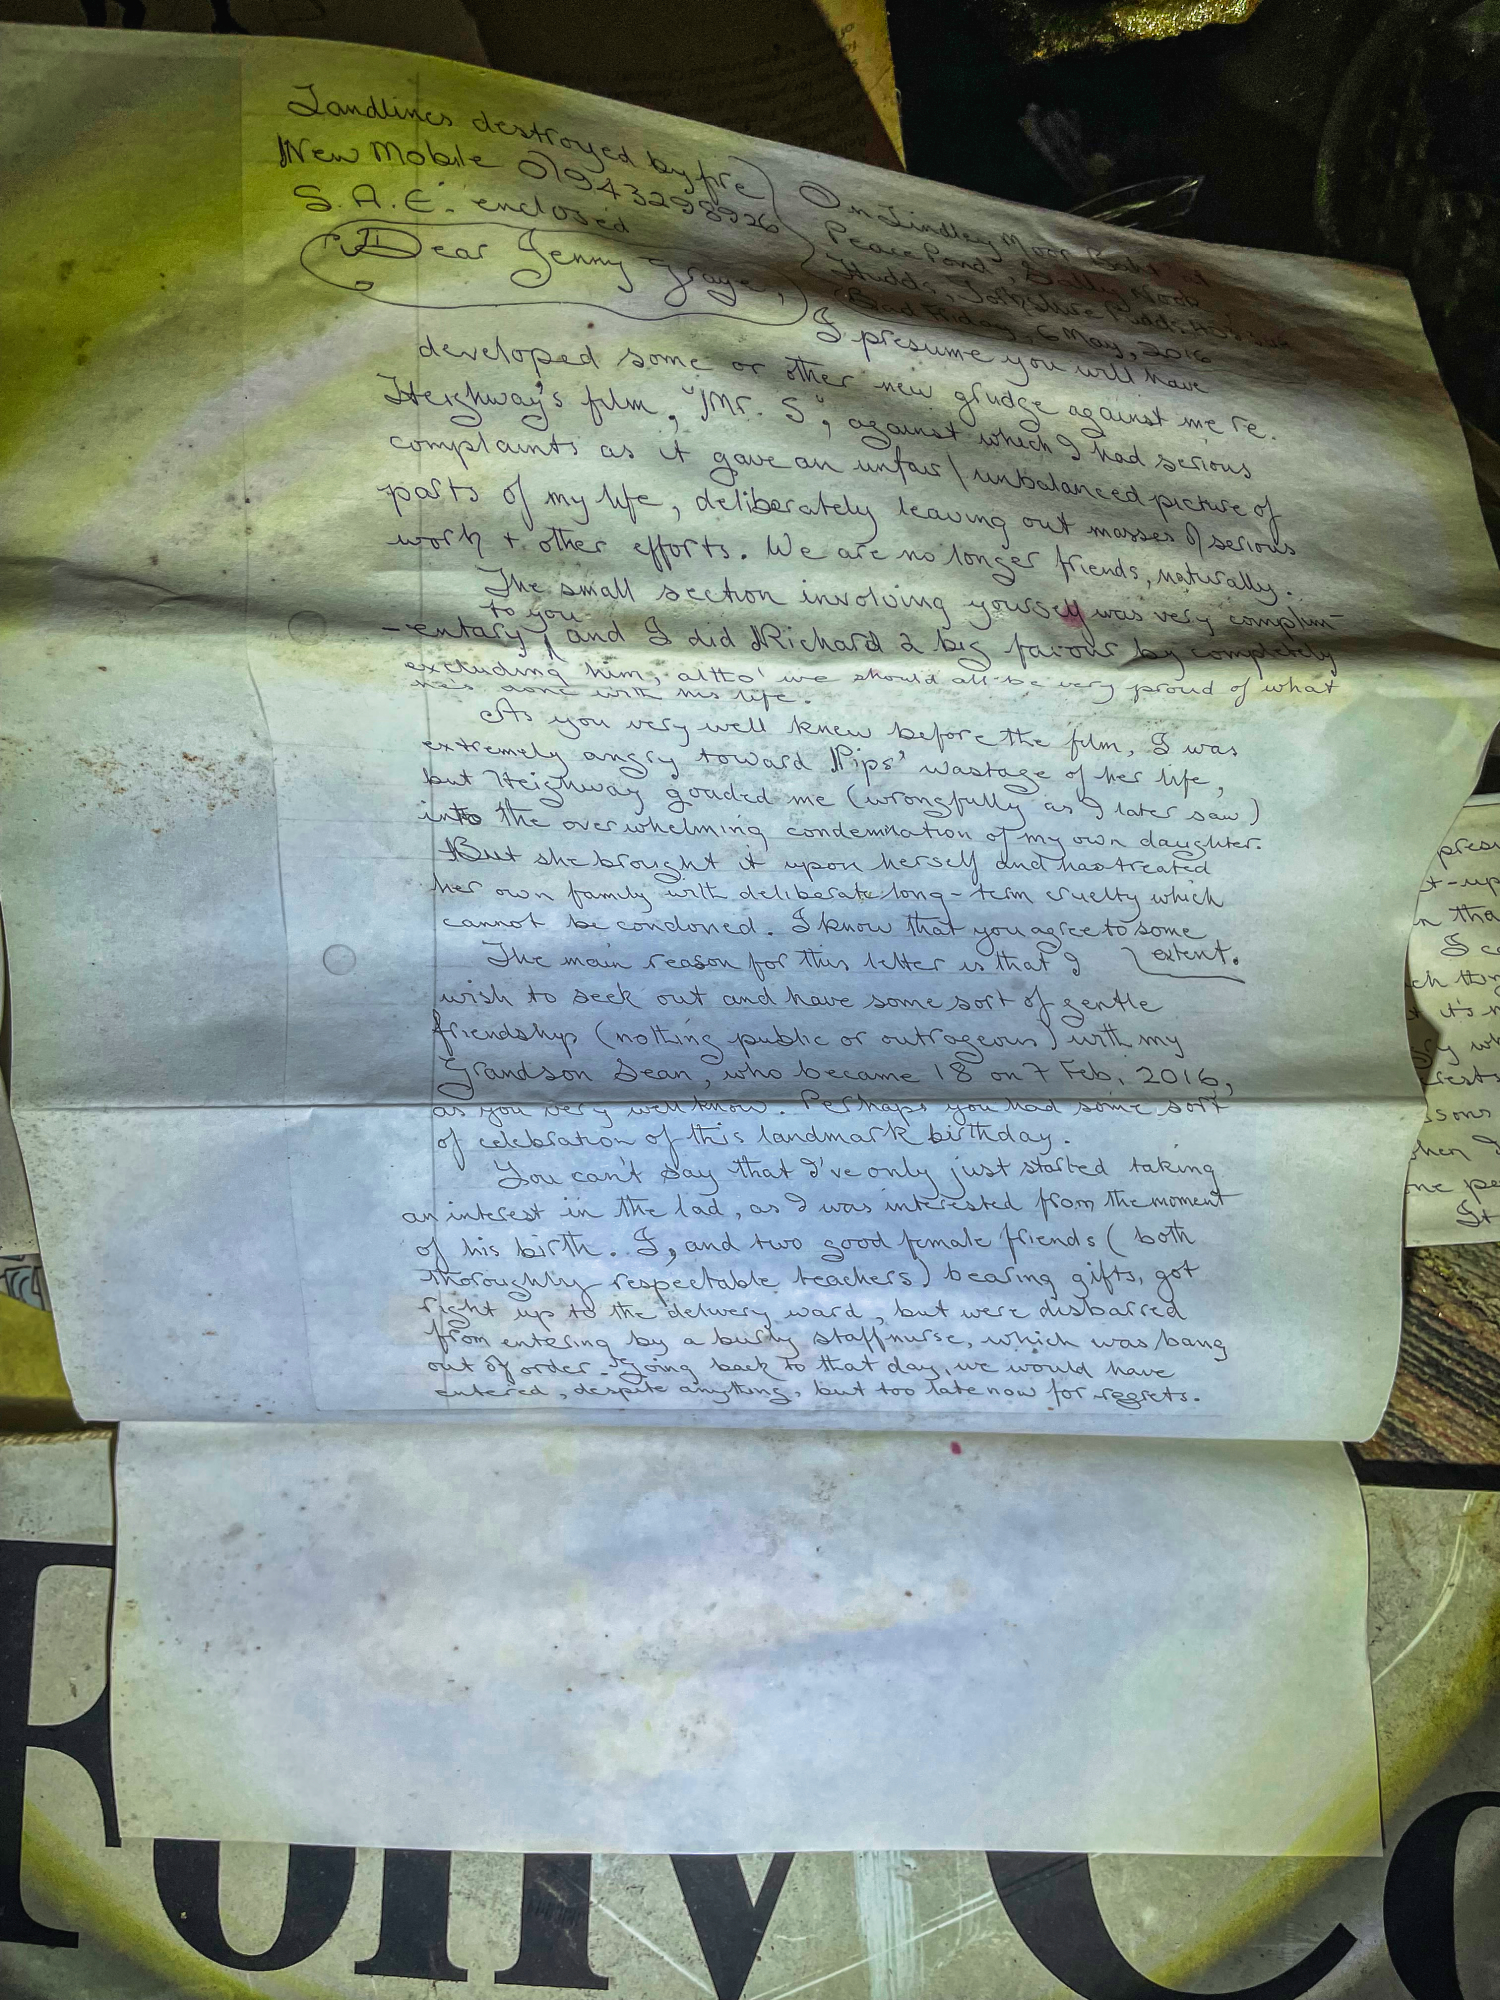 Landlines destroyed by fire
New Mobile 01943298926
S.A.E. enclosed
On Lindley Moor
Peace Pond, Salendine Nook
Hudds, Yorkshire Pudds
Bad Friday, 6 May, 2016
Dear Jenny Graye,
I presume you will have
developed some or other new grudge against me re.
Heighway's film, "Mr. S", against which I had serious
complaints as it gave an unfair/unbalanced picture of
parts of my life, deliberately leaving out masses of serious
work + other efforts. We are no longer friends, naturally.
The small section involving yourself was very complim-
to you
-entary, and I did Richard a big favour by completely
excluding him, altho' we should all be very proud of what
he's done with his life.
As you very well knew before the film, I was
extremely angry toward Pips' wastage of her life,
but Heighway goaded me (wrongfully as I later saw)
into the overwhelming condemnation of my own daughter.
But she brought it upon herself and has treated
her own family with deliberate long-term cruelty which
cannot be condoned. I know that you agree to some
extent.
The main reason for this letter is that I
wish to seek out and have some sort of gentle
friendship (nothing public or outrageous) with my
Grandson Sean, who became 18 on 7 Feb, 2016,
as you very well know. Perhaps you had some sort
of celebration of this landmark birthday.
You can't say that I've only just started taking
an interest in the lad, as I was interested from the moment
of his birth. I, and two good female friends (both
thoroughly respectable teachers) bearing gifts, got
right up to the delivery ward, but were disbarred
from entering by a burly staff nurse, which was bang
out of order. Going back to that day, we would have
entered, despite anything, but too late now for regrets.